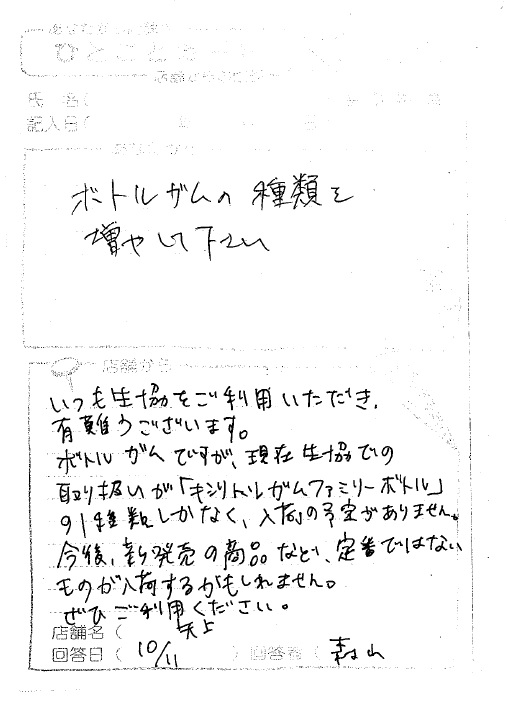 ひとことカード
氏 名(
記入日(
ボトルガムの種類を
増やして下さい
店舗から
いつも生協をご利用いただき、
有難うございます。
ボトルガムですが、現在生協での
取り扱いが「キシリトルガムファミリーボトル」
の1種類しかなく、入荷の予定がありません。
今後、新発売の商品など、定番ではない
ものが入荷するかもしれません。
ぜひご利用ください。
店舗名( 矢上
回答日( 10/11 ) 回答者( 森山